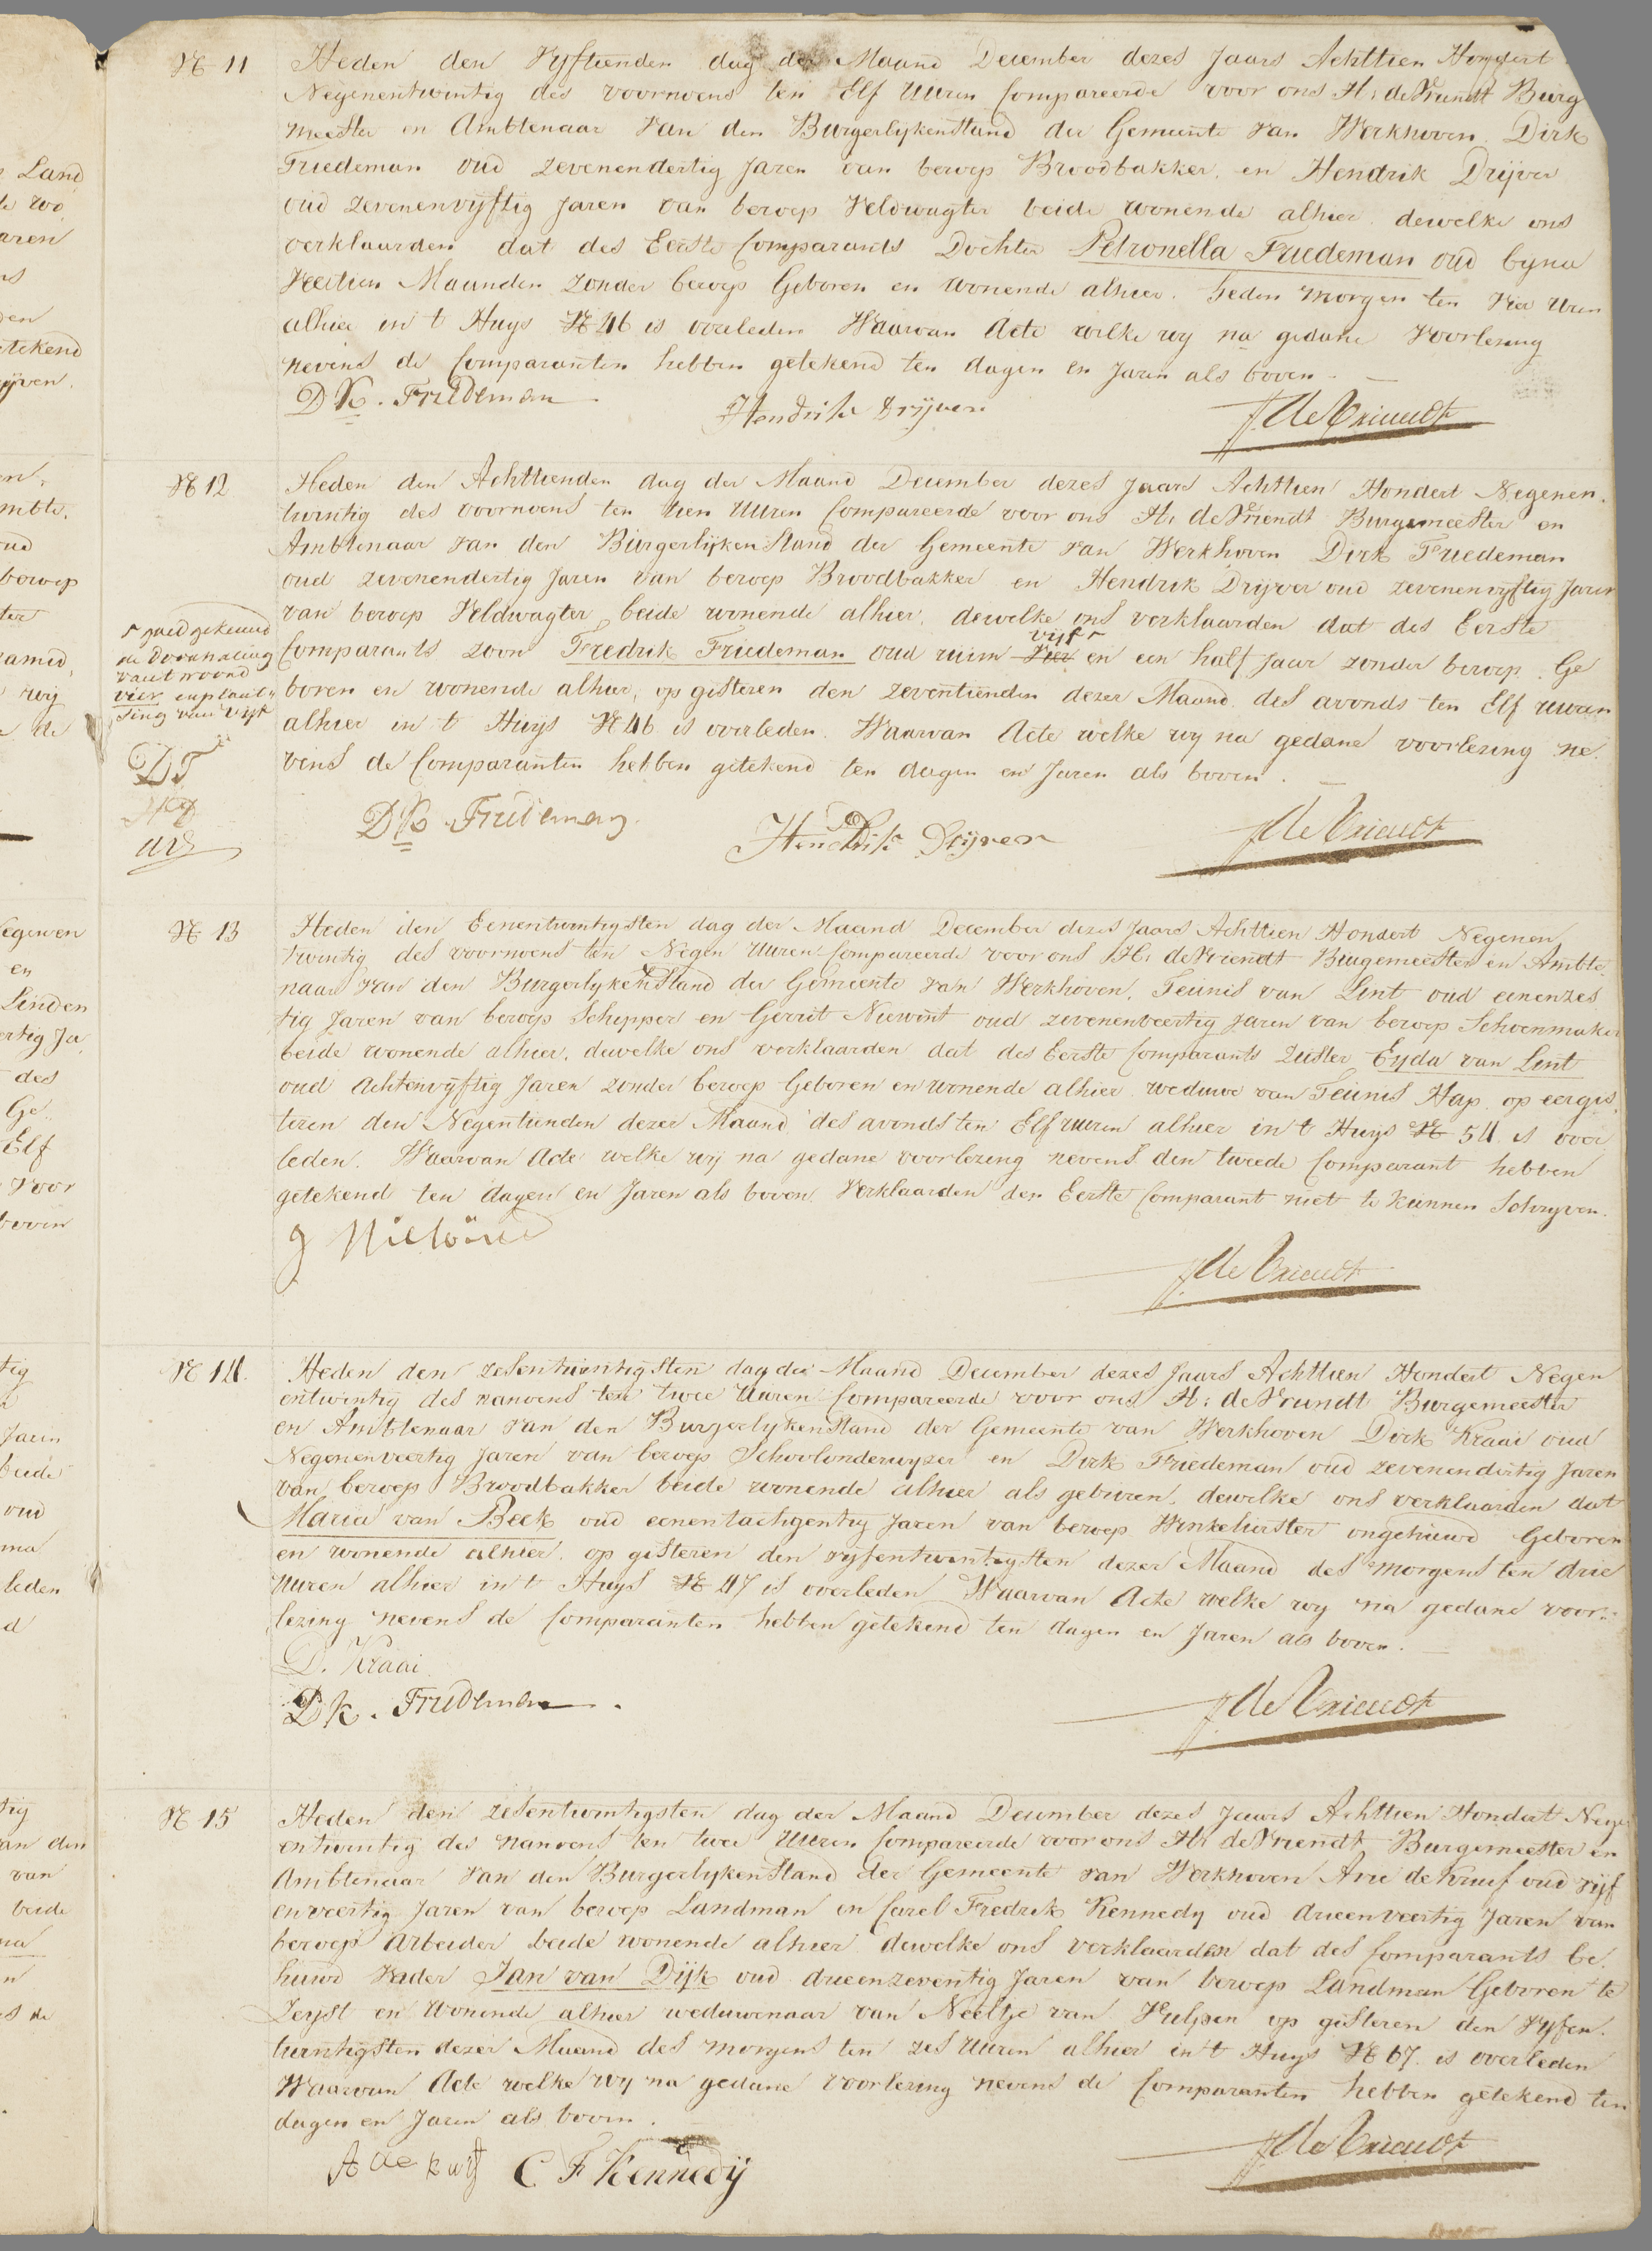 Land
de wo
aren
den
etekend
ijven.
en,
mbte,
oud
beroep
ter
wij
de
egenen
en
Linden
ertig Ja
des
Ge
Elf
voor
boven
tig
Jaren
beide
oud
ma
leden
d
tig
an den
van
beide
na
n
de
N 11
Heden den Vyftienden dag der Maand December dezes Jaars Achttien Hondert
Negenentwintig des voormoens ten Elf Uuren Compareerde voor ons H: de Vriendt Burg
meester en Ambtenaar van den Burgerlijken Stand der Gemeente van Werkhoven. Dirk
Friedeman oud zevenendertig Jaren van beroep Broodbakker, en Hendrik Drijver
oud zevenenvijftig Jaren van beroep Veldwagter beide wonende alhier dewelke ons
verklaarden dat des Eerste Comparants Dochter Petronella Friedeman oud byna
Veertien Maanden zonder beroep Geboren en Wonende alhier. heden morgen ten Vier Uren
alhier in t Huys N 46 is overleden Waarvan Acte welke wy na gedane Voorlezing
nevens de Comparanten hebben getekend ten dagen en Jaren als boven.
Dk. Friedeman
Hendrik Drijver
H de Vriendt
N 12
Heden den Achttienden dag der Maand December dezes Jaars Achttien Hondert Negenen
twintig des voornoens ten tien Uuren Compareerde voor ons H: de Vriendt Burgemeester en
Ambtenaar van den Burgerlijken Stand der Gemeente van Werkhoven Dirk Friedeman
oud zevenendertig Jaren van beroep Broodbakker en Hendrik Drijver oud zevenenvyftig Jaren
van beroep Veldwagter beide wonende alhier, dewelke ons verklaarden dat des Eerste
vijf
Comparants zoon Fredrik Friedeman oud ruim vier en een half Jaar zonder beroep Ge
boren en wonende alhier, op gisteren den zeventienden dezer Maand des avonds ten Elf uuren
alhier in t Huys N 46 is overleden. Waarvan Acte welke wy na gedane voorlezing ne
vens de Comparanten hebben getekend ten dagen en Jaren als boven.
goed gekeurd
de Doorhaling
van t woord
vier en plaat
sing van vijf
DF
HD
Dk. Friedeman
Hendrik Drijver
H de Vriendt
N 13
Heden den Eenentwintigsten dag der Maand December dezes Jaars Achttien Hondert Negenen
twintig des voornoens ten Negen Uuren Compareerde voor ons H: de Vriendt Burgemeester en Ambte
naar van den Burgerlyken Stand der Gemeente van Werkhoven. Teunis van Lint oud eenenzes
tig Jaren van beroep Schipper en Gerrit Niewint oud zevenenveertig Jaren van beroep Schoenmaker
beide wonende alhier, dewelke ons verklaarden dat des Eerste Comparants Zuster Eyda van Lint
oud Achtenvijftig Jaren zonder beroep Geboren en wonende alhier weduwe van Teunis Hap op eergis
teren den Negentienden dezer Maand des avonds ten Elf uuren alhier in t Huys N 54 is over
leden. Waarvan Acte welke wij na gedane voorlezing nevens den tweede Comparant hebben
getekend ten dagen en Jaren als boven. Verklaarden den Eerste Comparant niet te kunnen Schryven.
H de Vriendt
N 14.
Heden den zesentwintigsten dag der Maand December dezes Jaars Achttien Hondert Negen
entwintig des namoens ten twee Uuren Compareerde voor ons H: de Vriendt Burgemeester
en Ambtenaar van den Burgerlyken Stand der Gemeente van Werkhoven Dirk Kraai oud
Negenenveertig Jaren van beroep Schoolonderwyzer en Dirk Friedeman oud zevenendertig Jaren
van beroep Broodbakker beide wonende alhier als geburen, dewelke ons verklaarden dat
Maria van Beek oud eenentachgentig Jaren van beroep Winkelierster ongehuwd Geboren
en wonende alhier. op gisteren den vyfentwintigsten dezer Maand des morgens ten drie
Uuren alhier in t Huys N 47 is overleden Waarvan Acte welke wy na gedane voor
lezing nevens de Comparanten hebben getekend ten dagen en Jaren als boven.
D. Kraai
Dk. Friedeman
H de Vriendt
N 15
Heden den zesentwintigsten dag der Maand December dezes Jaars Achttien Hondert Nege
entwintig des namoens ten twee Uuren Compareerde voor ons H: de Vriendt Burgemeester en
Ambtenaar van den Burgerlyken Stand der Gemeente van Werkhoven Arie de Kruif oud vijf
enveertig Jaren van beroep Landman en Carel Fredrik Kennedy oud drieenveertig Jaren van
beroep Arbeider beide wonende alhier dewelke ons verklaarden dat des Comparants be
huwd Vader Jan van Dijk oud drieenzeventig Jaren van beroep Landman Geboren te
Zeyst en Wonende alhier weduwenaar van Neeltje van Vulpen op gisteren den Vyfen
twintigsten dezer Maand des morgens ten zes Uuren alhier in t Huys N 67 is overleden
Waarvan Acte welke wy na gedane Voorlezing nevens de Comparanten hebben getekend ten
dagen en Jaren als boven.
A de kuif
C F Kennedij
H de Vriendt